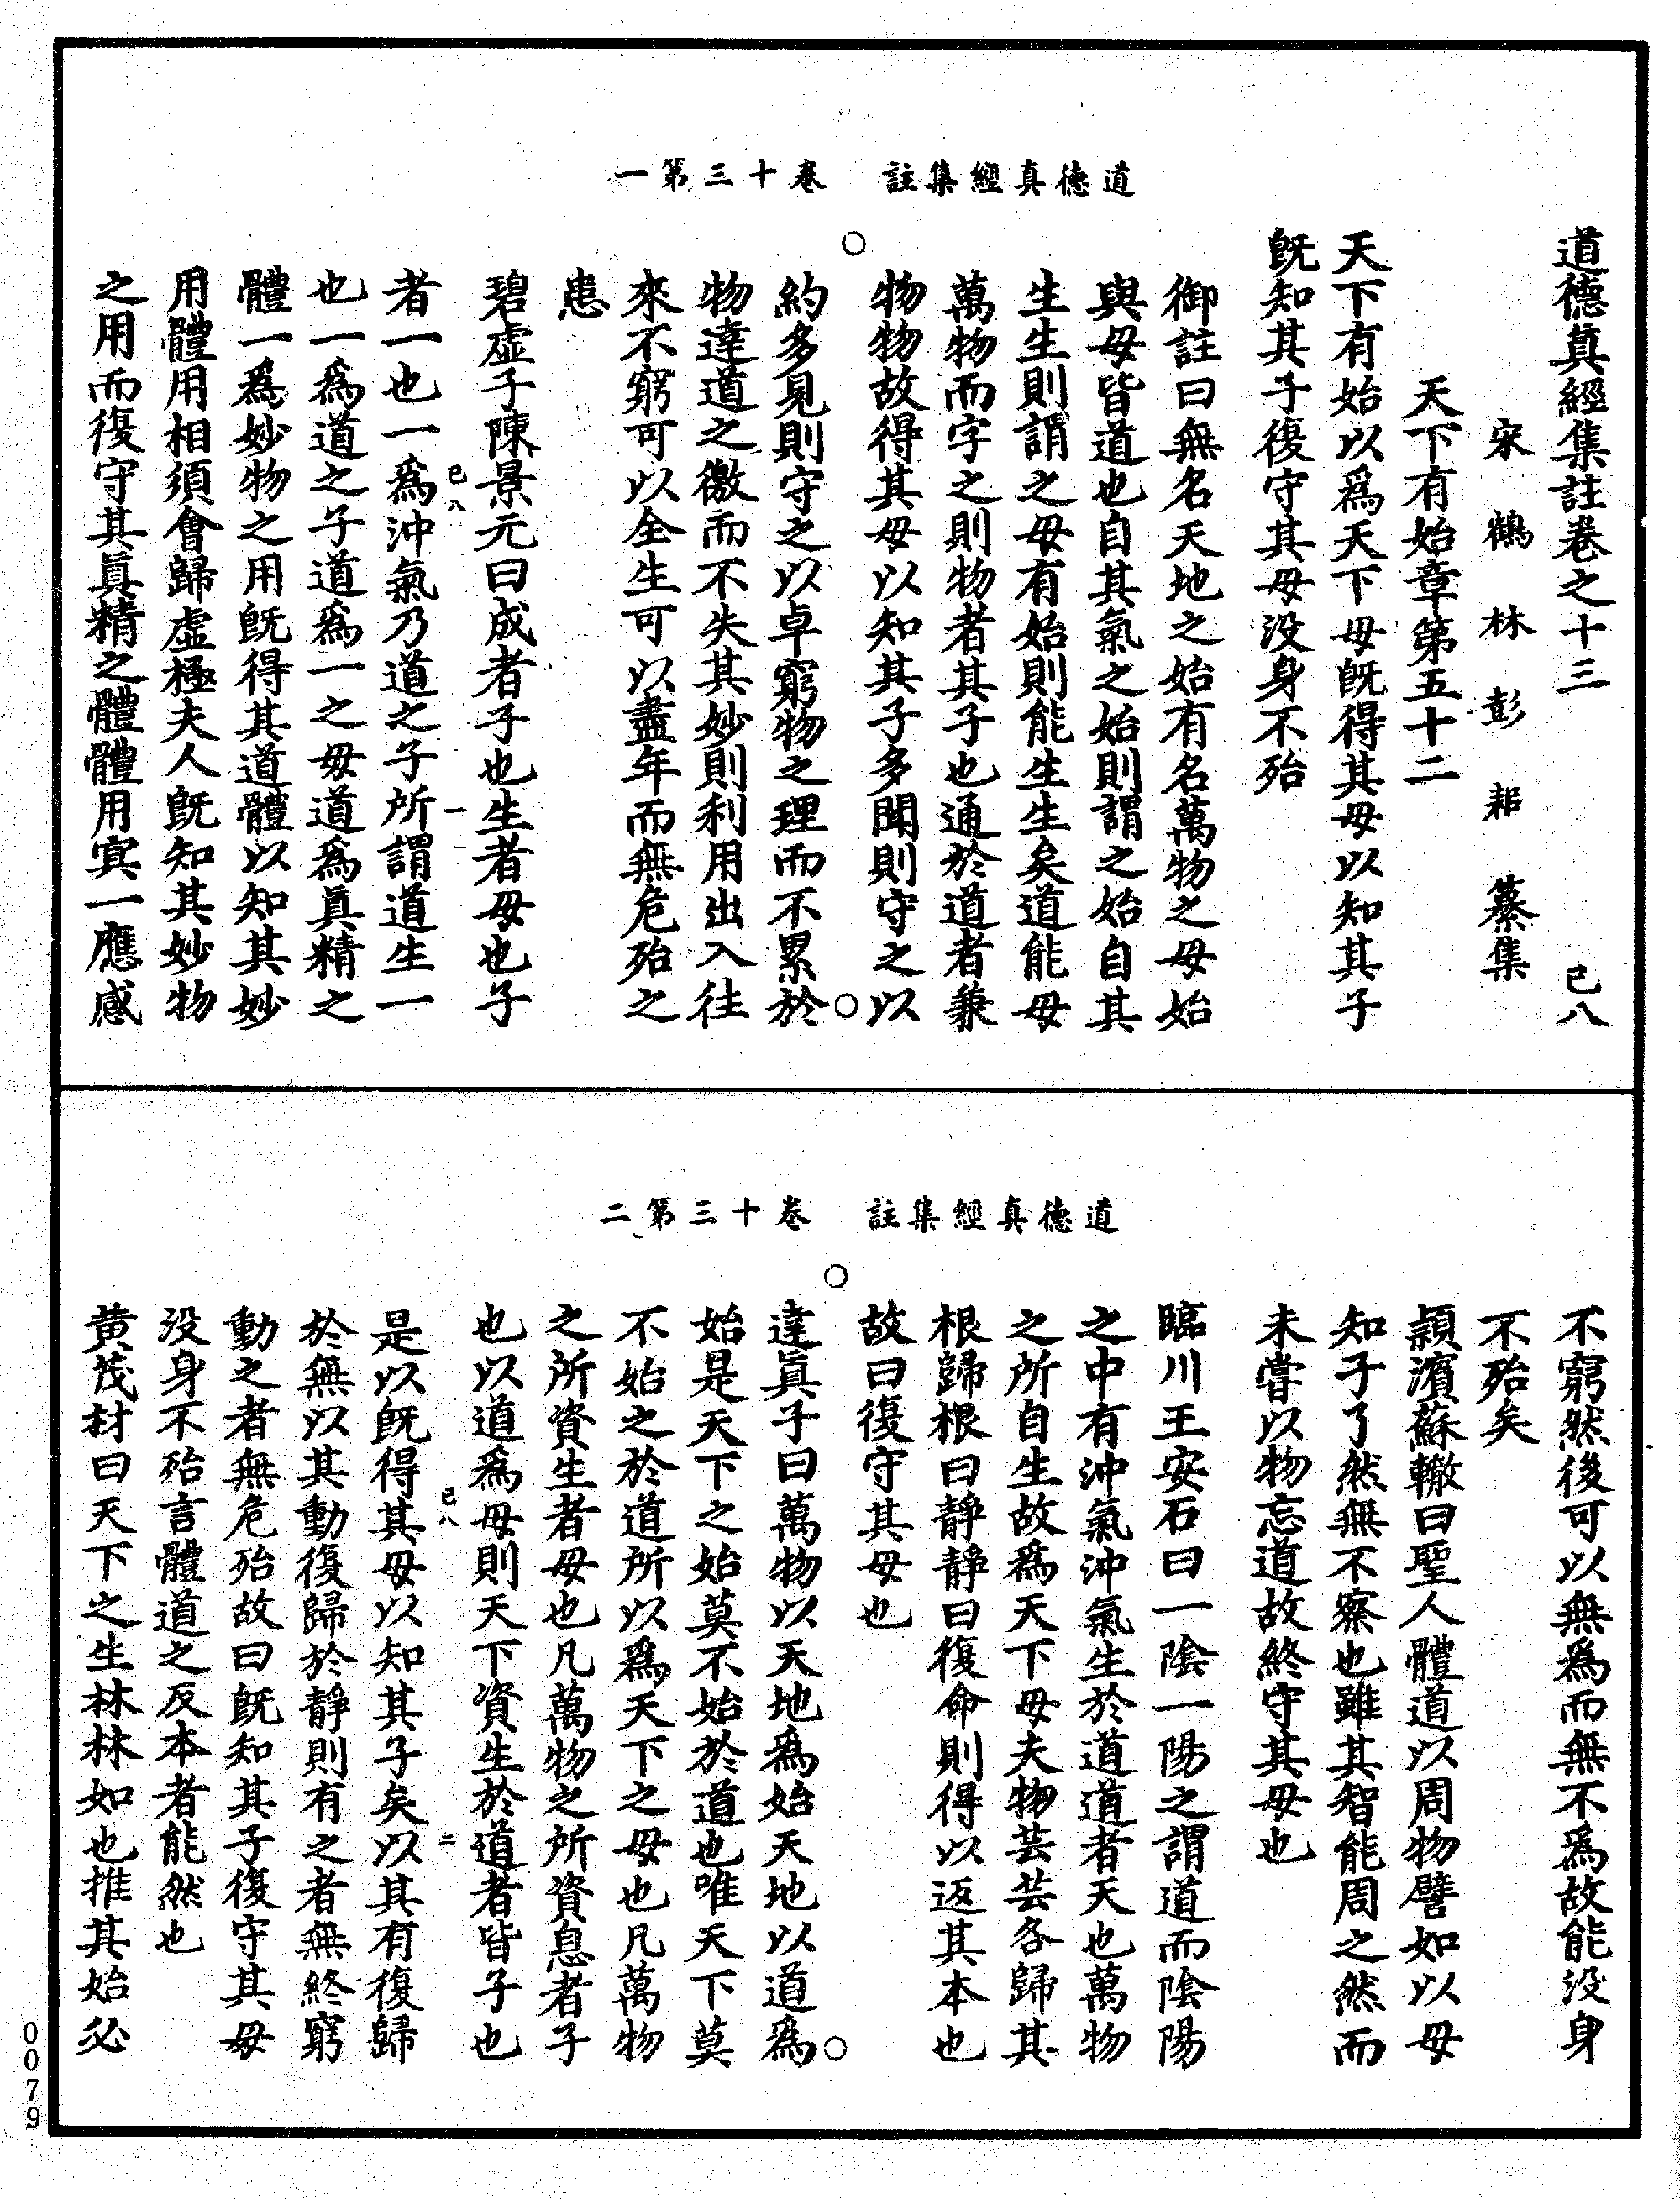 道德真經集註　卷十三第一
道德眞經集註卷之十三　己八
宋鶴林彭耜纂集
天下有始章第五十二
天下有始以爲天下母旣得其母以知其子
旣知其子復守其母没身不殆
御註曰無名天地之始有名萬物之母始
與母皆道也自其氣之始則謂之始自其
生生則謂之母有始則能生生矣道能母
萬物而字之則物者其子也通於道者兼
物物故得其母以知其子多聞則守之以
約多見則守之以卓窮物之理而不累於
物達道之徼而不失其妙則利用出入往
來不窮可以全生可以盡年而無危殆之
患
碧虛子陳景元曰成者子也生者母也子
己八　一
者一也一爲沖氣乃道之子所謂道生一
也一爲道之子道爲一之母道爲眞精之
體一爲妙物之用旣得其道體以知其妙
用體用相須會歸虛極夫人旣知其妙物
之用而復守其眞精之體體用冥一應感
道德真經集註　卷十三第二
不窮然後可以無爲而無不爲故能没身
不殆矣
潁濱蘇轍曰聖人體道以周物譬如以母
知子了然無不察也雖其智能周之然而
未嘗以物忘道故終守其母也
臨川王安石曰一陰一陽之謂道而陰陽
之中有沖氣沖氣生於道道者天也萬物
之所自生故爲天下母夫物芸芸各歸其
根歸根曰靜靜曰復命則得以返其本也
故曰復守其母也
達眞子曰萬物以天地爲始天地以道爲
始是天下之始莫不始於道也唯天下莫
不始之於道所以爲天下之母也凡萬物
之所資生者母也凡萬物之所資息者子
也以道爲母則天下資生於道者皆子也
己八　二
是以旣得其母以知其子矣以其有復歸
於無以其動復歸於靜則有之者無終窮
動之者無危殆故曰旣知其子復守其母
没身不殆言體道之反本者能然也
黄茂材曰天下之生林林如也推其始必
0079